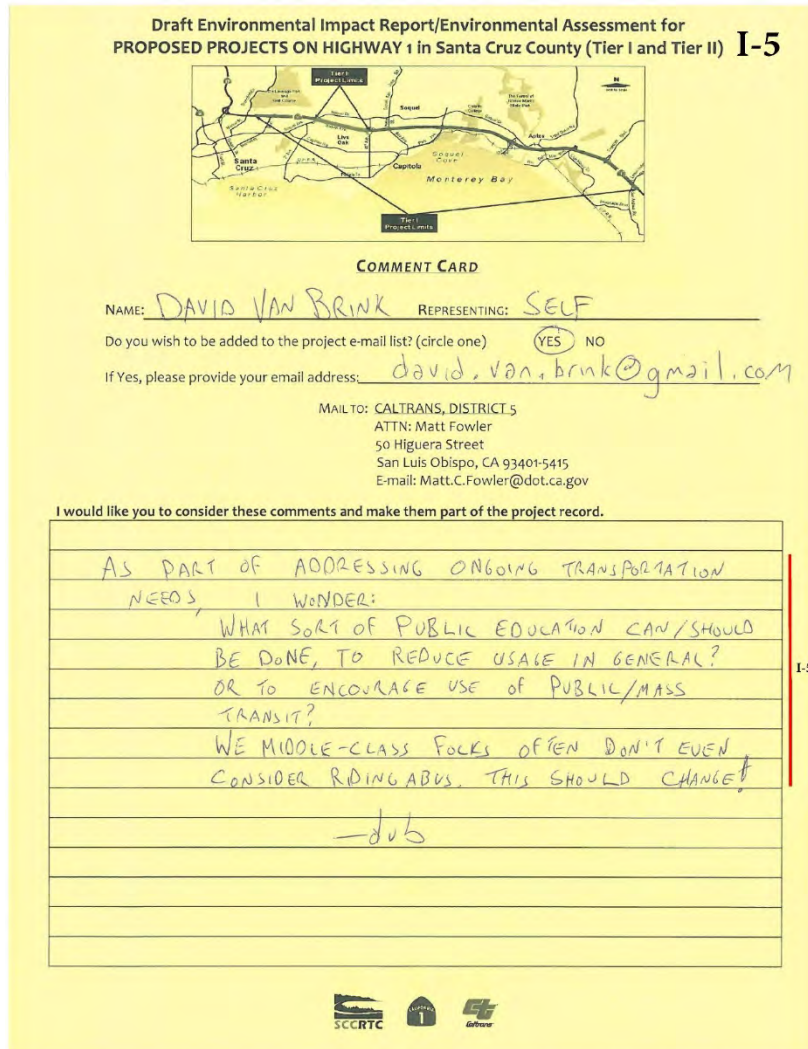 Draft Environmental Impact Report/Environmental Assessment for
PROPOSED PROJECTS ON HIGHWAY 1 in Santa Cruz County (Tier I and Tier II)
I-5
Tier II
Project Limits
Soquel
Live
Oak
Aptos
Santa
Cruz
Capitola
Soquel
Cove
Monterey Bay
Santa Cruz
Harbor
Tier I
Project Limits
COMMENT CARD
NAME: DAVID VAN BRINK REPRESENTING: SELF
Do you wish to be added to the project e-mail list? (circle one) YES NO
If Yes, please provide your email address: david.van.brink@gmail.com
MAIL TO: CALTRANS, DISTRICT 5
ATTN: Matt Fowler
50 Higuera Street
San Luis Obispo, CA 93401-5415
E-mail: Matt.C.Fowler@dot.ca.gov
I would like you to consider these comments and make them part of the project record.
AS PART OF ADDRESSING ONGOING TRANSPORTATION
NEEDS, I WONDER:
WHAT SORT OF PUBLIC EDUCATION CAN/SHOULD
BE DONE, TO REDUCE USAGE IN GENERAL?
OR TO ENCOURAGE USE OF PUBLIC/MASS
TRANSIT?
WE MIDDLE-CLASS FOLKS OFTEN DON'T EVEN
CONSIDER RIDING A BUS. THIS SHOULD CHANGE!
—dvb
SCCRTC
CALIFORNIA
1
Caltrans